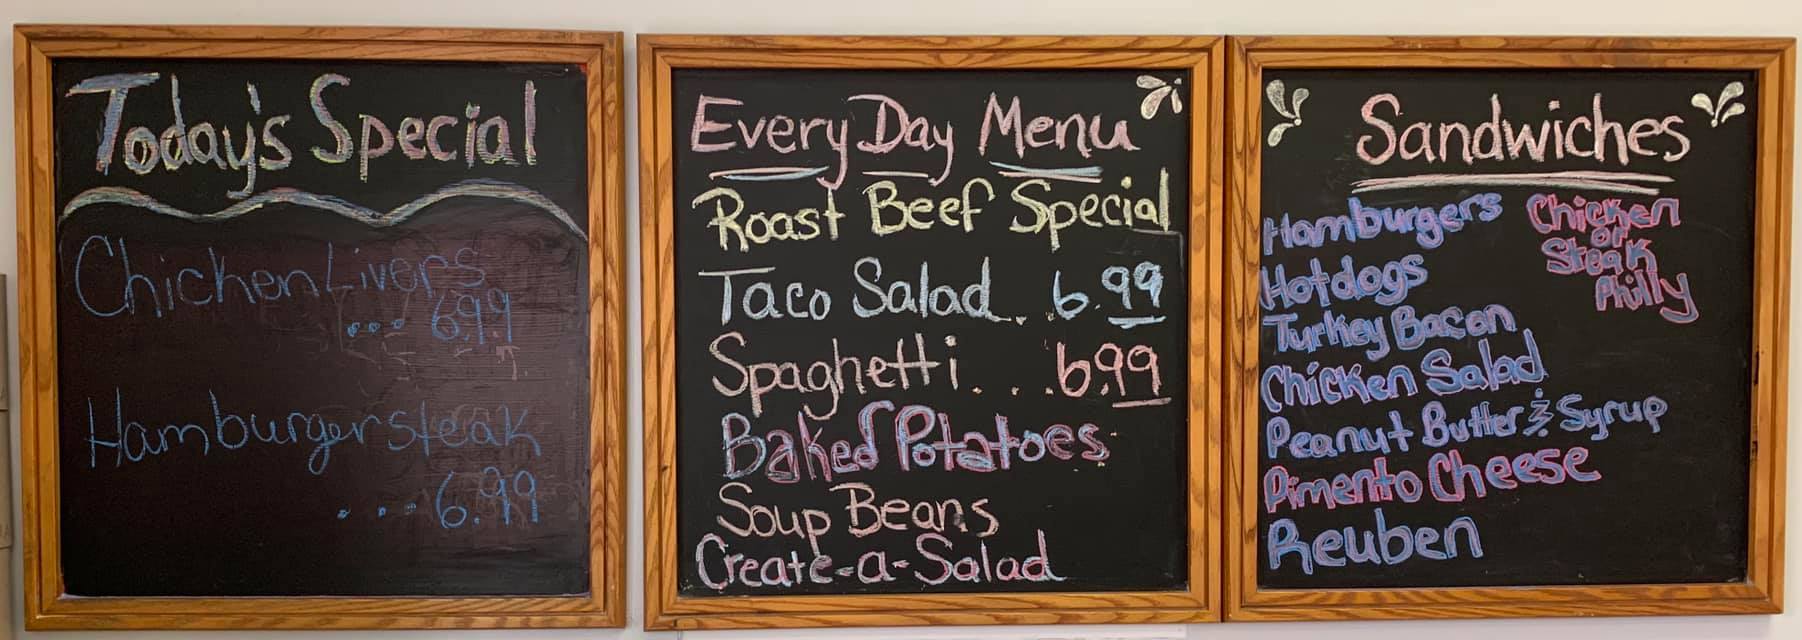 Today's Special
Chicken Livers
... 6.99
Hamburger steak
. ... 6.99
Every Day Menu
Roast Beef Special
Taco Salad. . 6.99
Spaghetti. . . 6.99
Baked Potatoes
Soup Beans
Create-a-Salad
Sandwiches
Hamburgers
Hotdogs
Turkey Bacon
Chicken Salad
Peanut Butter & Syrup
Pimento Cheese
Reuben
Chicken
or
Steak
Philly